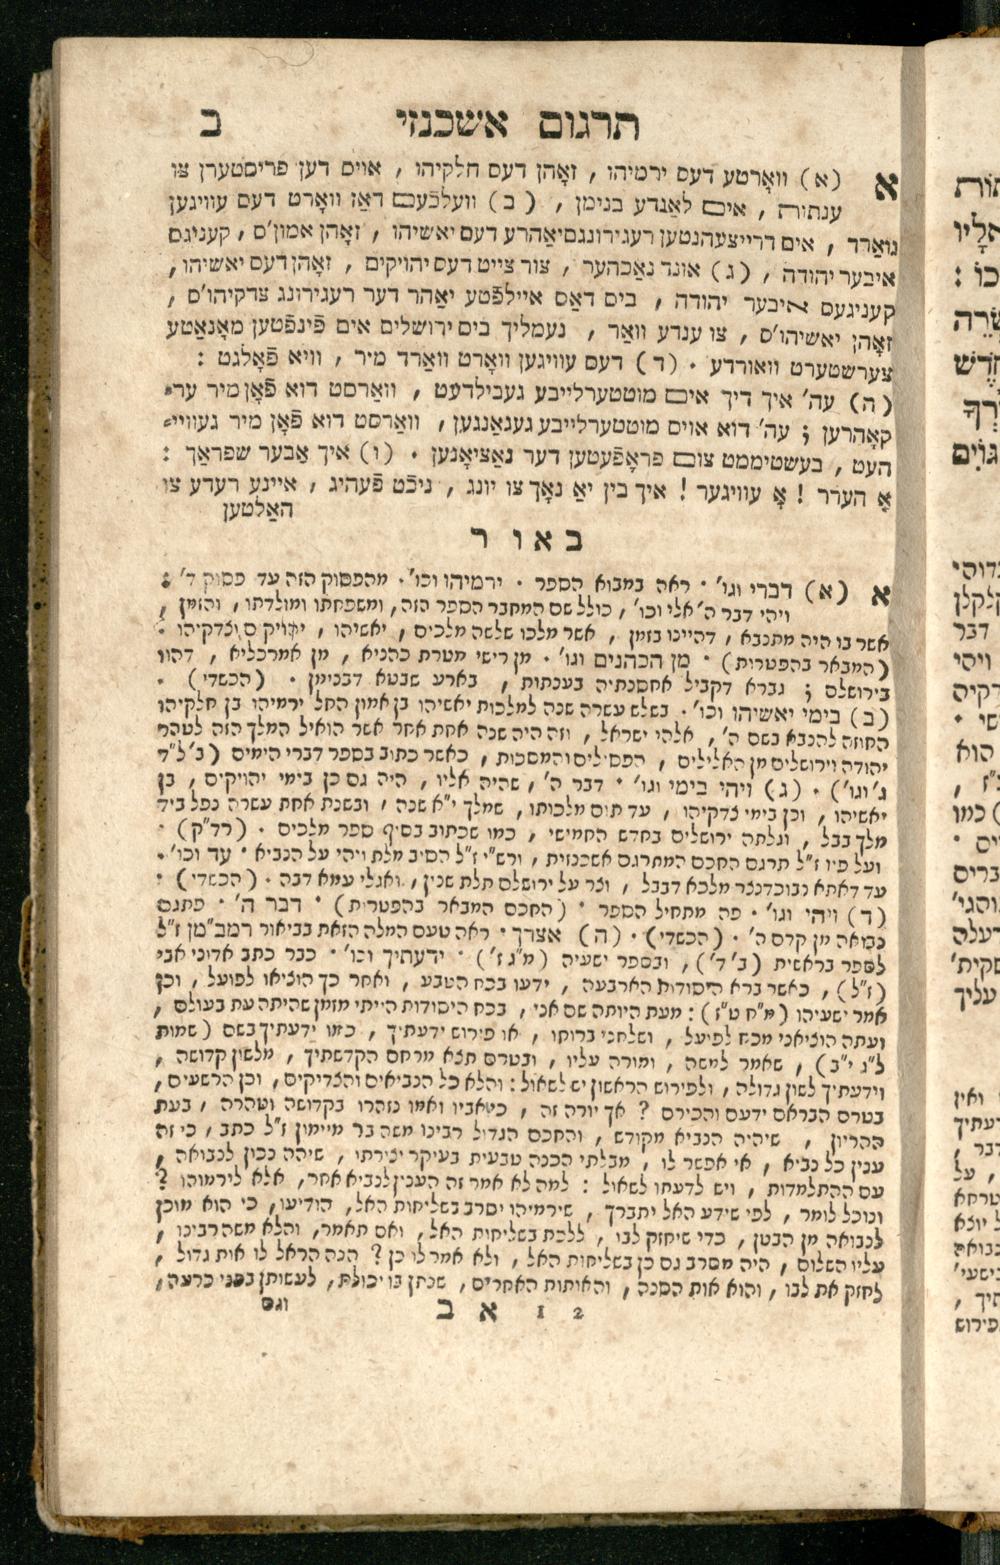 תרגום אשכנזי ב
א (א) ווארטע דעס ירמיהו , זאָהן דעס חלקיהו , אויס דען פריסטערן צו
ענתות , אים לאַנדע בנימן , (ב) וועלכעם דאז ווארט דעס עוויגען
וואַרד , אים דרייצעהנטען רעגירונגסיאַהרע דעס יאשיהו , זאָהן אמון'ס , קעניגס
איבער יהודה , (ג) אונד נאַכהער , צור צייט דעס יהויקים , זאָהן דעס יאשיהו ,
קעניגעס איבער יהודה , ביס דאַס איילפֿטע יאַהר דער רעגירונג צדקיהו'ס ,
זאָהן יאשיהו'ס , צו ענדע וואַר , נעמליך ביס ירושלים אים פֿינפֿטען מאָנאַטע
צערשטערט וואורדע . (ד) דעס עוויגען ווארט ווארד מיר , וויא פֿאָלגט :
(ה) עה' איך דיך אים מוטטערלייבע געבילדעט , וואַרסט דוא פֿאָן מיר ער=
קאָהרען ; עה' דוא אויס מוטטערלייבע געגאַנגען , וואַרסט דוא פֿאָן מיר געוויי=
העט , בעשטיממט צום פראָפֿעטען דער נאַציאָנען . (ו) איך אַבער שפראַך :
אָ הערר ! אָ עוויגער ! איך בין יאַ נאָך צו יונג , ניכֿט פֿעהיג , איינע רעדע צו
האַלטען
באור
א (א) דברי וגו' . ראה במבוא הספר . ירמיהו וכו' . מהפסוק הזה עד פסוק ד' :
ויהי דבר ה' אלי וכו' , כולל שם המחבר הספר הזה, ומשפחתו ומולדתו , והזמן ,
אשר בו היה מתנבא , דהיינו בזמן , אשר מלכו שלשה מלכים , יאשיהו , יהויקים וצדקיהו :
(המבאר בהפטרות) . מן הכהנים וגו' . מן רישי מטרת כהניא , מן אמרכליא , דהוו
בירושלם ; גברא דקביל אחסנתיה בענתות , בארע שבטא דבנימן . (הכשדי) .
(ב) בימי יאשיהו וכו' . בשלש עשרה שנה למלכות יאשיהו בן אמון החל ירמיהו בן חלקיהו
החוזה להנבא בשם ה' , אלהי ישראל , וזה היה שנה אחת אחר אשר הואיל המלך הזה לטהר
יהודה וירושלים מן האלילים , הפסילים והמסכות , כאשר כתוב בספר דברי הימים (ב' ל"ד
ג' וגו') . (ג) ויהי בימי וגו' . דבר ה' , שהיה אליו , היה גם כן בימי יהויקים , בן
יאשיהו , וכן בימי צדקיהו , עד תום מלכותו , שמלך י"א שנה , ובשנת אחת עשרה נפל ביד
מלך בבל , וגלתה ירושלים בחדש החמישי , כמו שכתוב בסוף ספר מלכים . (רד"ק) .
ועל פיו ז"ל תרגם החכם המתרגם אשכנזית , ורש"י ז"ל הסיב מלת ויהי על הנביא . עד וכו' .
עד דאתא נבוכדנצר מלכא דבבל , וצר על ירושלם תלת שנין , ואגלי עמא דבה . (הכשדי) :
(ד) ויהי וגו' . פה מתחיל הספר . (החכם המבאר בהפטרות) . דבר ה' . פתגם
נבואה מן קדם ה' . (הכשדי) . (ה) אצרך . ראה טעם המלה הזאת בביאור רמבמ"ן ז"ל
לספר בראשית (ב' ד') , ובספר ישעיה (מ"ג ז') . ידעתיך וכו' . כבר כתב אדוני אבי
(ז"ל) , כאשר ברא היסודות הארבעה , ידעו בכח הטבע , ואחר כך הוציאו לפועל , וכן
אמר ישעיהו (מ"ח ט"ז) : מעת היותה שם אני , בכח היסודות הייתי מזמן שהיתה עת בעולם ,
ועתה הוציאני מכח לפועל , ושלחני ברוחו , או פירוש ידעתיך , כמו ידעתיך בשם (שמות
ל"ג י"ב) , שאמר למשה , ומורה עליו , ובטרם תצא מרחם הקדשתיך , מלשון קדושה ,
וידעתיך לשון גדולה , ולפירוש הראשון יש לשאול : והלא כל הנביאים והצדיקים , וכן הרשעים ,
בטרם הבראם ידעם והכירם ? אך יורה זה , כשאביו ואמו נזהרו בקדושה וטהרה , בעת
ההריון , שיהיה הנביא מקודש , והחכם הגדול רבינו משה בר מיימון ז"ל כתב , כי זה
ענין כל נביא , אי אפשר לו , מבלתי הכנה טבעית בעיקר יצירתו , שיהה נכון לנבואה ,
עם ההתלמדות , ויש לדעתו לשאול : למה לא אמר זה הענין לנביא אחר, אלא לירמוהו ?
ונוכל לומר , לפי שידע האל יתברך , שירמיהו יסרב בשליחות האל, הודיעו , כי הוא מוכן
לנבואה מן הבטן , כדי שיחזק לבו , ללכת בשליחות האל , ואם תאמר, והלא משה רבינו ,
עליו השלום , היה מסרב גם כן בשליחות האל , ולא אמר לו כן ? הנה הראל לו אות גדול ,
לחזק את לבו , והוא אות הסנה , והאותות האחרים , שנתן בו יכולת , לעשותן בפני פרעה,
א ב 1 2 וגם